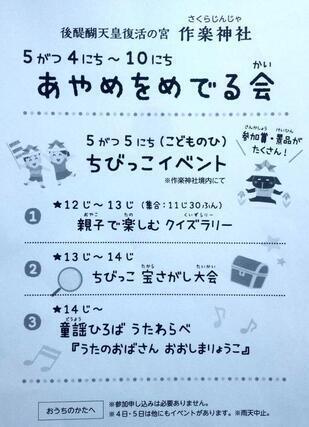 さくらじんじゃ
後醍醐天皇復活の宮 作楽神社
5がつ4にち～10にち
かい
あやめをめでる会
5がつ5にち(こどものひ)
ちびっこイベント
※作楽神社境内にて
さんかしょう けいひん
参加賞・景品が
たくさん!
1 ★12じ～13じ (集合:11じ30ぷん)
おやこ たの くいずらりー
親子で楽しむ クイズラリー
2 ★13じ～14じ
たから たいかい
ちびっこ 宝さがし大会
3 ★14じ～
どうよう
童謡ひろば うたわらべ
『うたのおばさん おおしまりょうこ』
おうちのかたへ
※参加申し込みは必要ありません。
※4日・5日は他にもイベントがあります。※雨天中止。